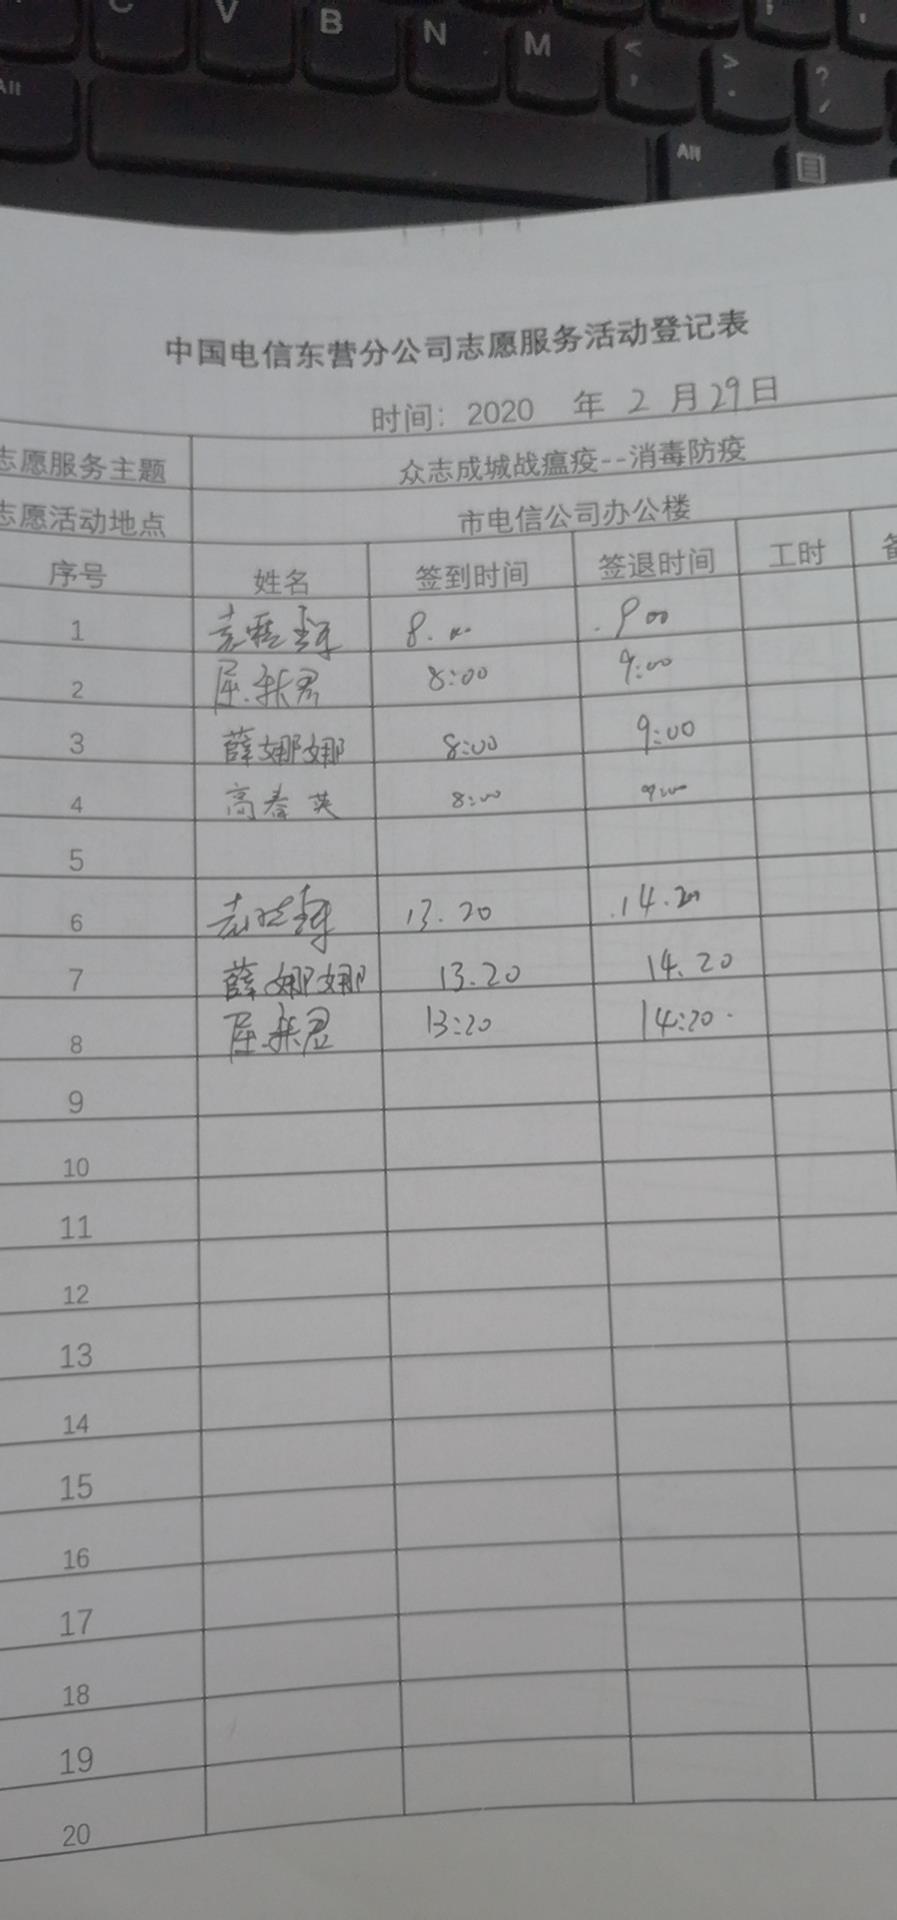 C V B N M < ,
> .
? /
Alt Alt
中国电信东营分公司志愿服务活动登记表
时间：2020 年 2 月 29 日
志愿服务主题 众志成城战瘟疫--消毒防疫
志愿活动地点 市电信公司办公楼
序号 姓名 签到时间 签退时间 工时 备
1 8.00 9 00
2 屈新君 8:00 9:00
3 薛娜娜 8:00 9:00
4 高春英 8:00 9:00
5
6 13.20 14.20
7 薛娜娜 13.20 14.20
8 屈新君 13:20 14:20
9
10
11
12
13
14
15
16
17
18
19
20